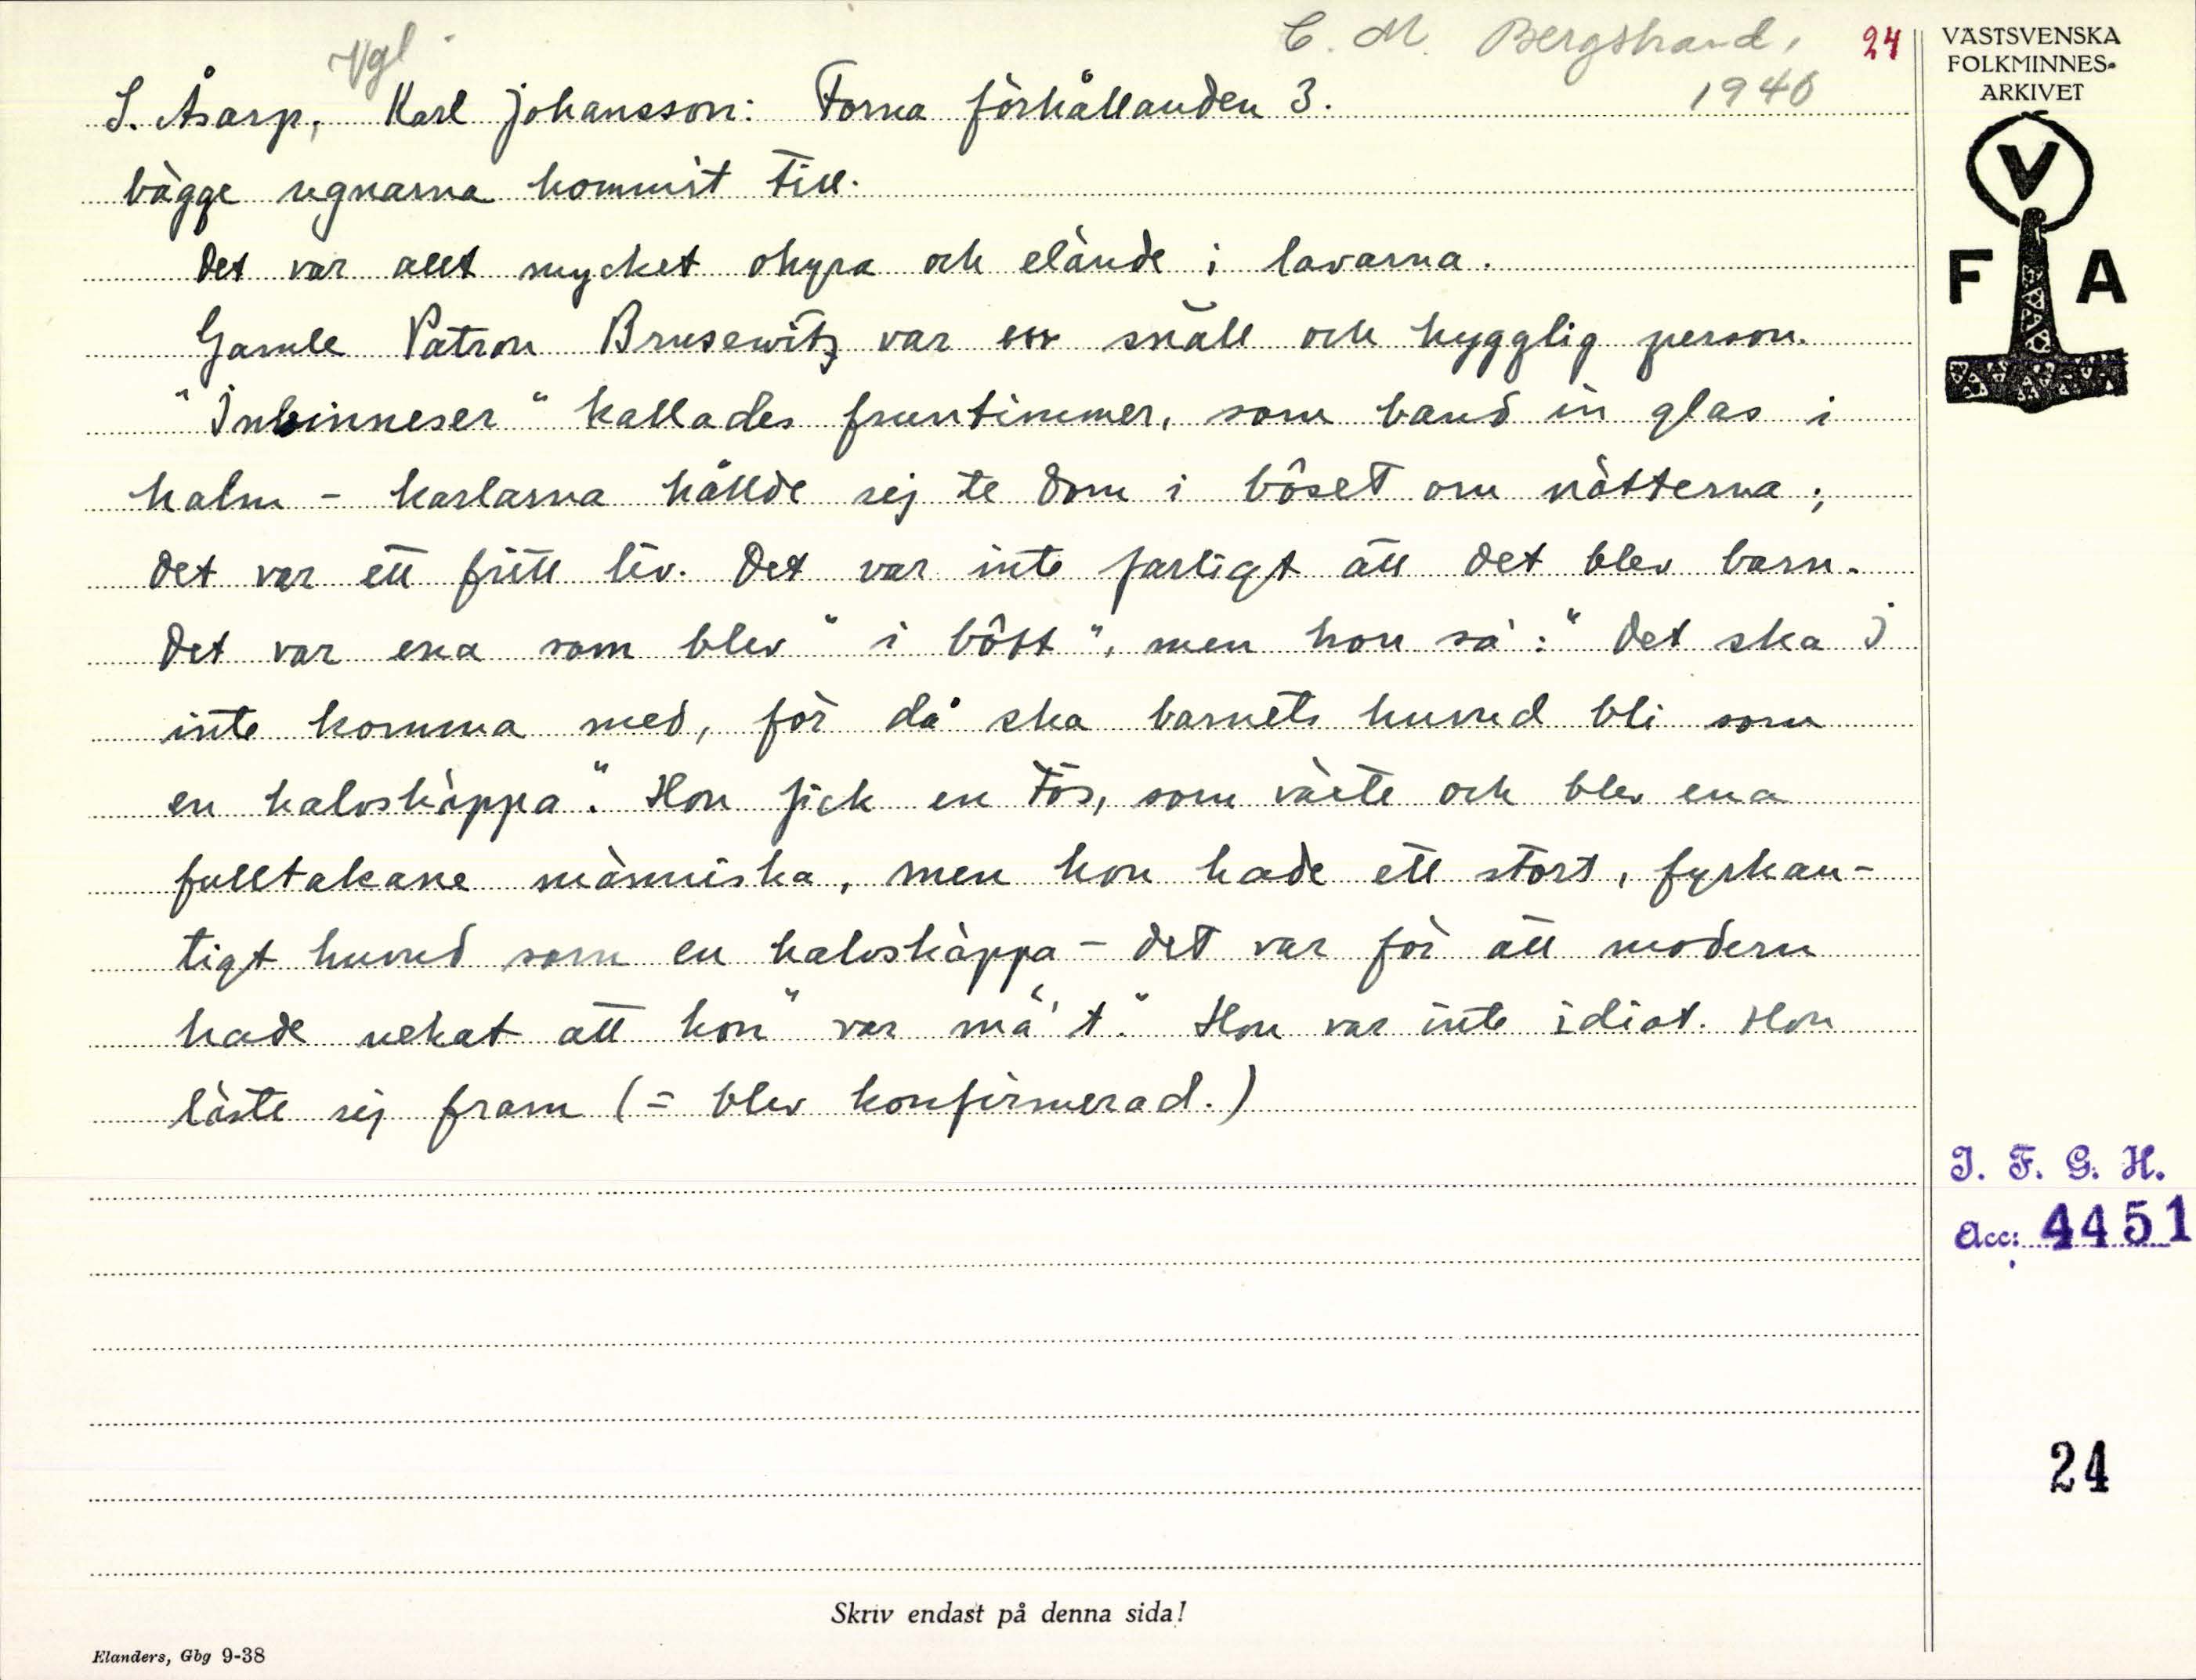 Vgl
C. M. Bergstrand,
24
1940
S. Åsarp, Karl Johansson: Forna förhållanden 3.
bägge ugnarna kommit till.
Det var allt mycket ohyra och elände i lavarna.
Gamle Patron Brusewitz var en snäll och hygglig person.
"Inbinneser" kallades fruntimmer, som band in glas i
halm - karlarna hållde sej te dom i bôset om nätterna;
det var ett fritt liv. Det var inte farligt att det blev barn.
Det var ena som blev "i bôtt", men hon sa: "Det ska I
inte komma med, för då ska barnets huvud bli som
en halvskäppa". Hon fick en tös, som växte och blev ena
fulltakane människa, men hon hade ett stort, fyrkan-
tigt huvud som en halvskäppa - det var för att modern
hade nekat att hon "var mä't". Hon var inte idiot. Hon
läste sej fram (= blev konfirmerad.)
VÄSTSVENSKA
FOLKMINNES-
ARKIVET
V
F A
I. F. G. H.
Acc: 4451
24
Skriv endast på denna sida!
Elanders, Gbg 9-38